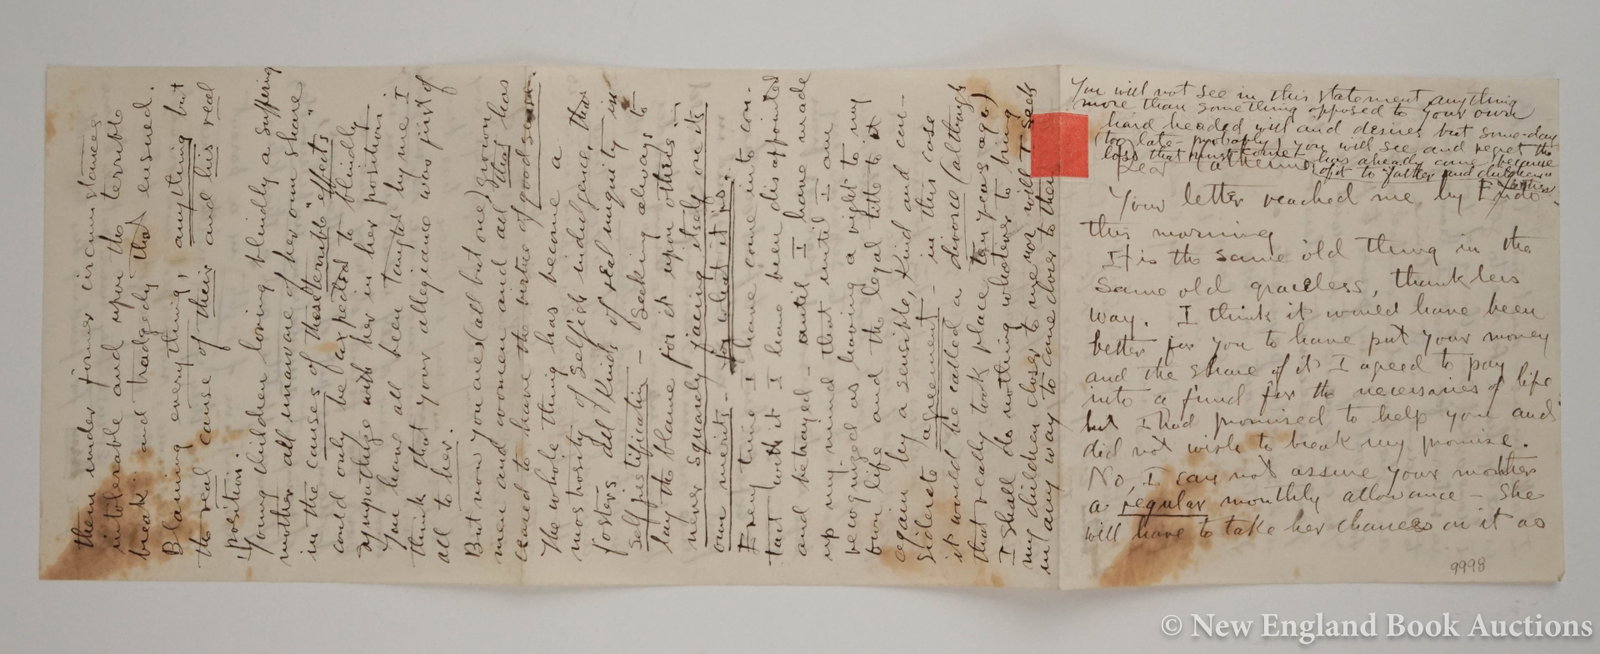 You will not see in this statement anything
more than something opposed to your own
hard headed will and desires but some-day
too late - probably, you will see and regret the
loss that must come - has already come - because
of it to father and children
Dear Catherine:
Your letter reached me by
this morning
It is the same old thing in the
same old graceless, thankless
way. I think it would have been
better for you to have put your money
and the share of it I agreed to pay
into a fund for the necessaries of life
but I had promised to help you and
did not wish to break my promise.
No, I can not assure your mother
a regular monthly allowance - She
will have to take her chances on it as
9998
them under former circumstances
intolerable and upon the terrible
break and tragedy that ensued.
Blaming everything, anything but
the real cause of their and his real
position.
Young children loving blindly a suffering
mother all unaware of her own share
in the causes of those "terrible effects"
could only be expected to blindly
sympathize with her in her position.
You have all been taught by me I
think that your allegiance was first of
all to her.
But now you are (all but one) grown
men and women and and that has
ceased to have the virtue of good
The whole thing has become a
monstrosity of selfish indulgence, that
fosters all kinds of iniquity in
self justification - seeking always to
lay the blame for it upon others -
never squarely facing itself on its
own merits - for what it is.
Every time I have come into con-
tact with it I have been disappointed
and betrayed - until I have made
up my mind that until I am
recognized as having a right to my
own life and the legal title to it
again by a sensible, kind and con-
siderate agreement - in this case
it would be called a divorce (although
that really took place ten years ago)
I shall do nothing whatever to bring
my children closer to me nor will I seek
in any way to come closer to them
© New England Book Auctions